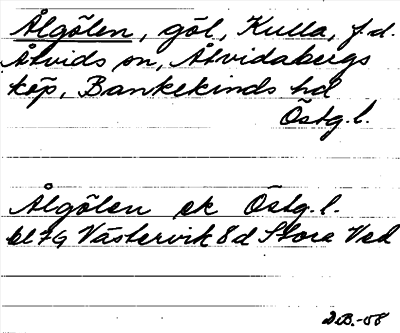 Ålgölen, göl, Kulla, f.d.
Åtvids sn, Åtvidabergs
köp, Bankekinds hd
Östg.l.
Ålgölen ek Östg.l.
bl 7G Västervik 8d Stora Ved
DB.-58